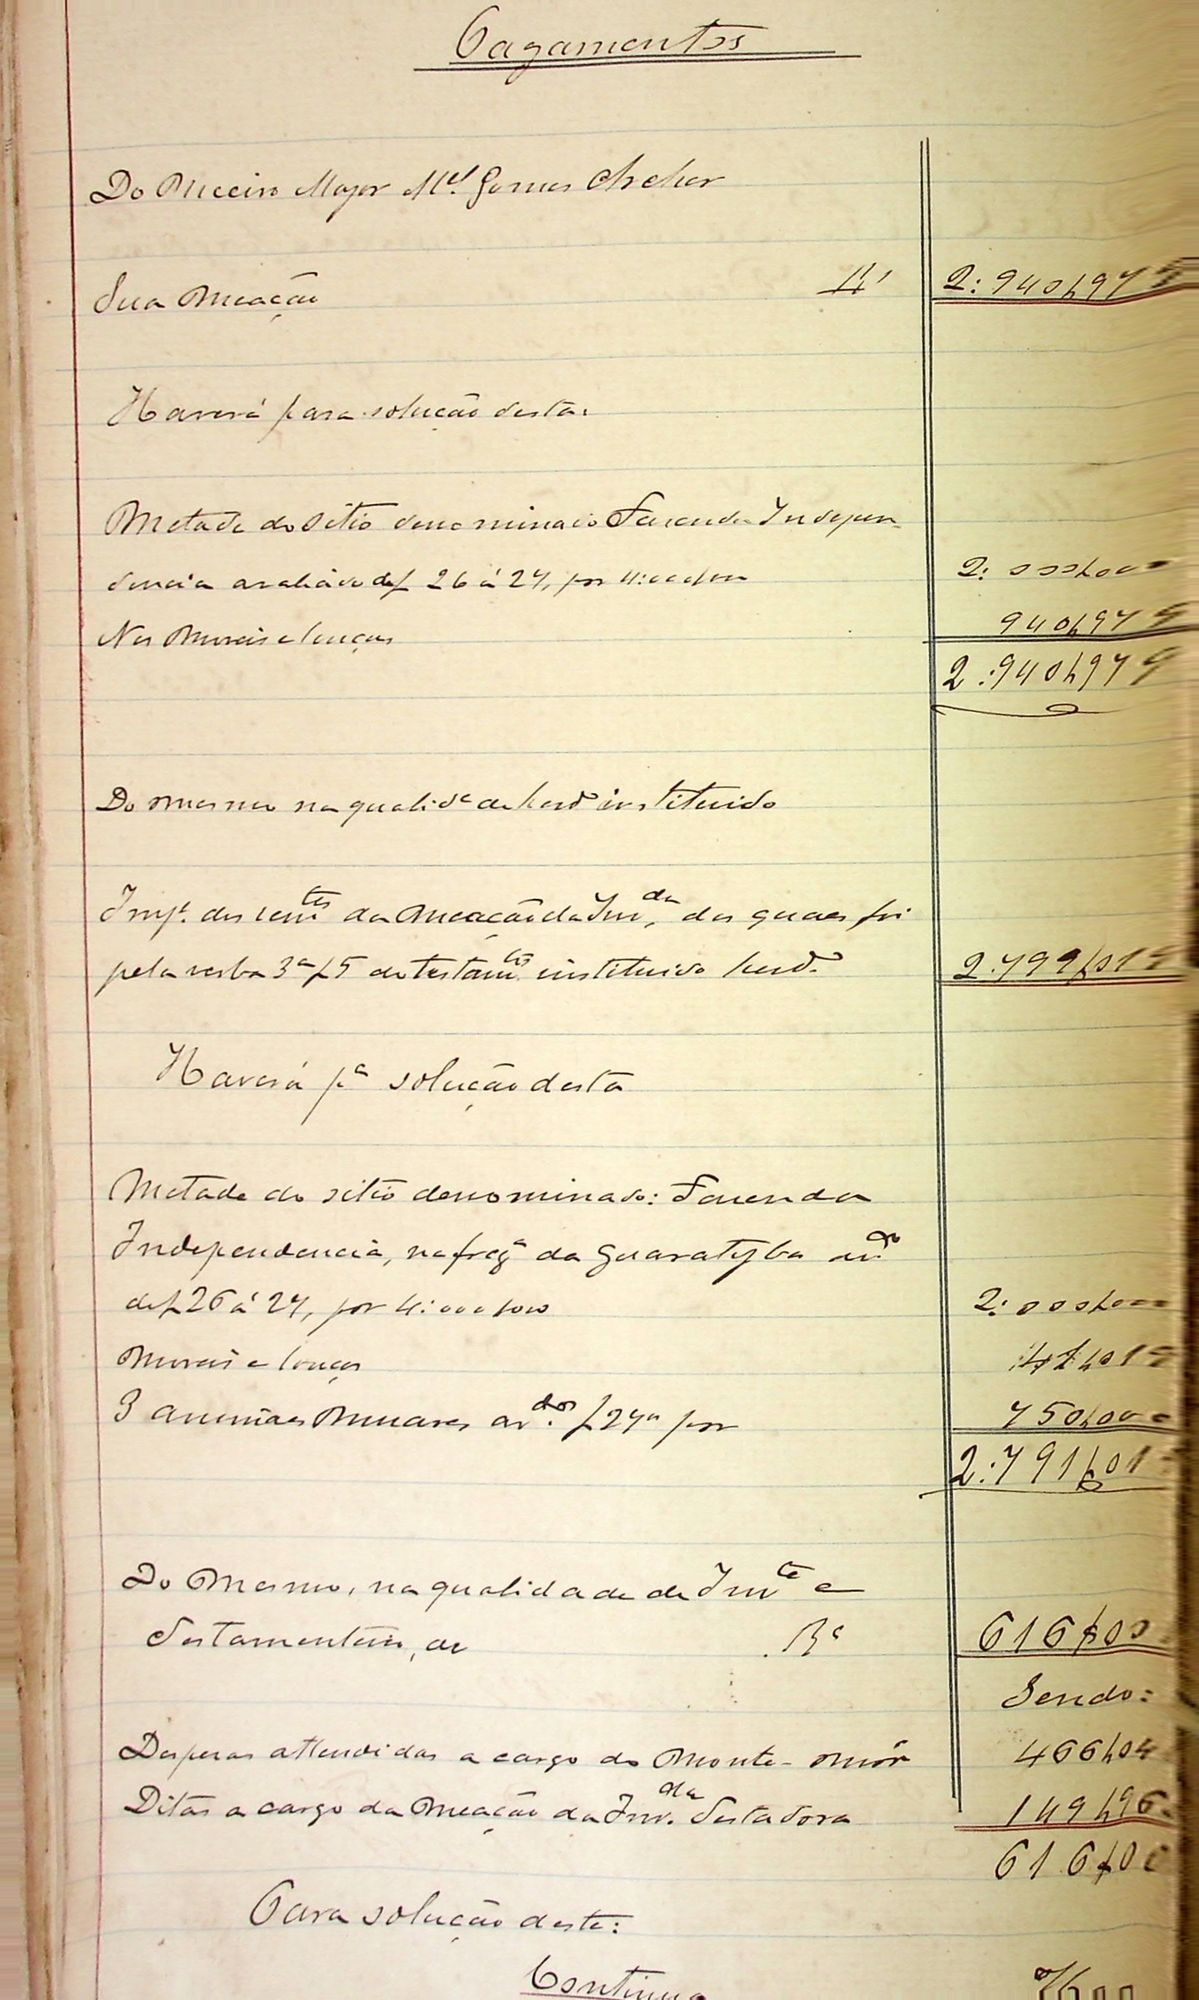 Pagamentos
Do Meeiro Major Mel. Gomes Archer
Sua Meação Rs 2:940$979
Haverá para solução desta:
Metade do sitio denominado Fazenda Indepen-
dencia avaliado af 26 á 27, por 4:000$000 2:000$000
Nos Moveis e louças 940$979
2:940$979
Do mesmo na qualide de herdo instituido
Impe. dos remtes da Meação da Invda, dos quaes foi
pela verba 3a f 5 do testamto instituido herdo 2.791$01
Haverá pa solução desta
Metade do sitio denominado: Fazenda
Independencia, na frega da Guaratyba avdo
def 26 á 27, por 4:000$000 2:000$000
Moveis e louças 41$01
3 animaes Muares avdos. f 27 por 750$000
2:791$01
Do Mesmo, na qualidade de Invte e
Testamenteiro, de Rs 616$00
Sendo:
Despezas attendidas a cargo do Monte-mór 466$04
Ditas a cargo da Meação da Invda. Testadora 149$96
616$00
Para solução deste:
Continua